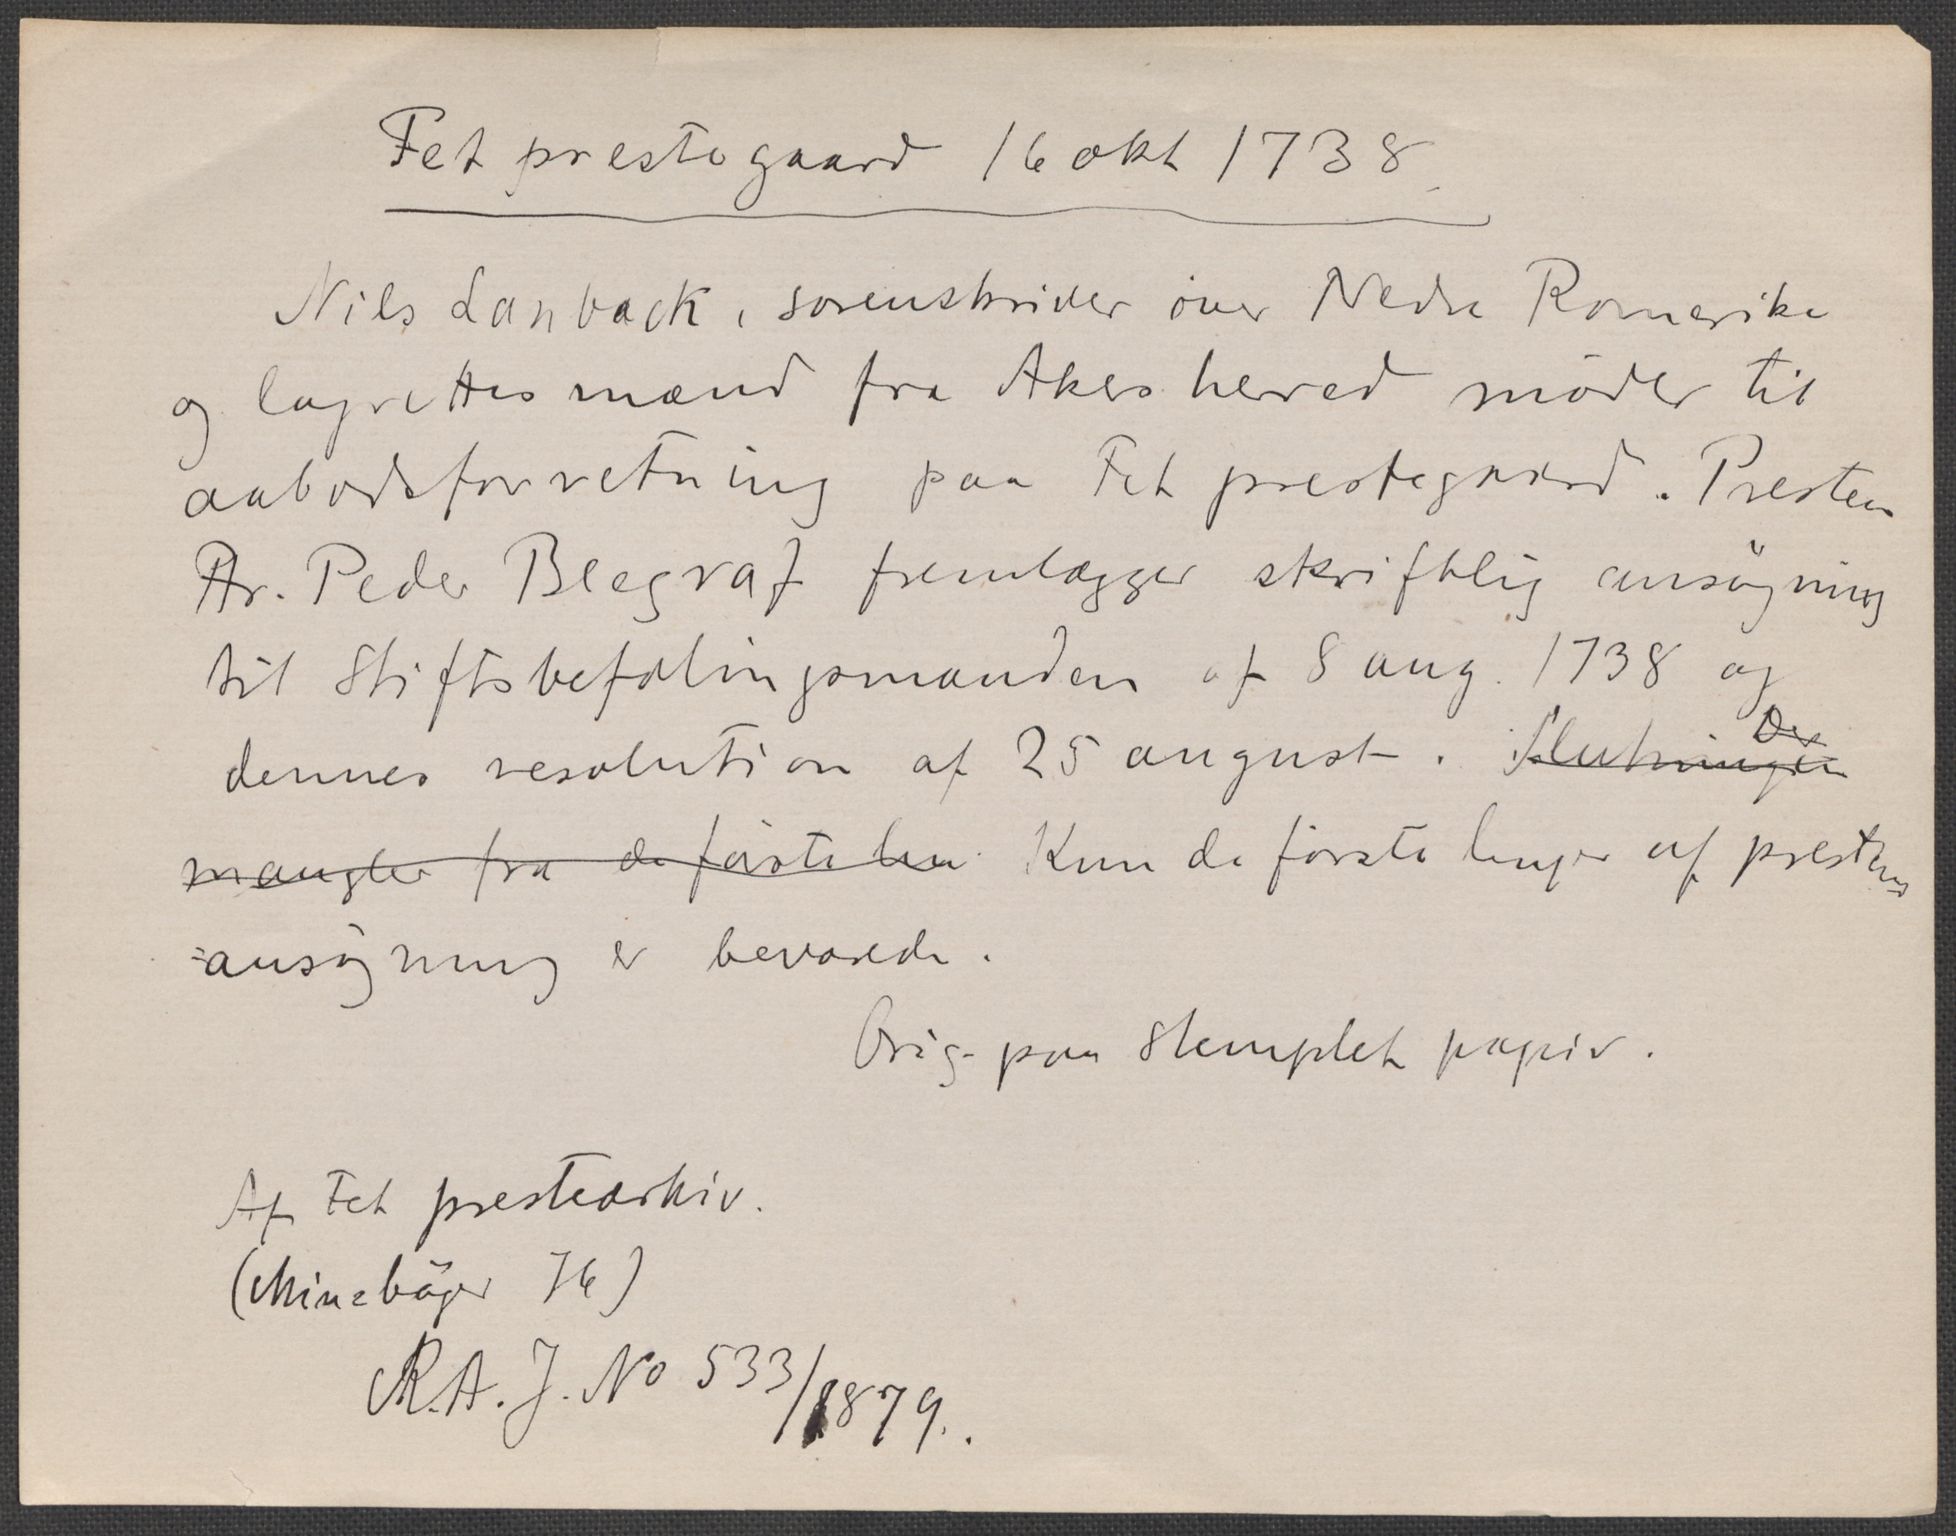 Fet prestegaard 16 okt 1738.
Nils Lanback, sorenskriver över Nedre Romerike
og lagrettesmænd fra Akers herred möder til
aabodsforretning paa Fet prestegaard. Presten
Hr. Peder Blegraf fremlægger skriftlig ansögning
til Stiftsbefalingsmanden af 8 aug. 1738 og
dennes resolution af 25 august. Slutningen
mangler fra de förste Kun de förste linjer af prestens
ansögning er bevarede.
Orig. paa stemplet papir.
Af Fet prestearkiv.
(Minebøger 76)
R.A. J. No 533/1879.